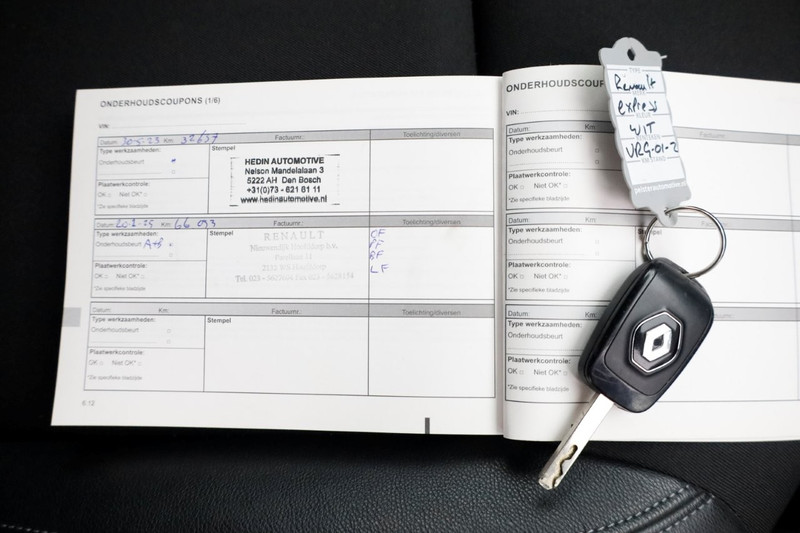 ONDERHOUDSCOUPONS (1/6)
VIN:
Datum: Km: 32657 Factuurnr.: Toelichting/diversen
Type werkzaamheden:
Onderhoudsbeurt
Plaatwerkcontrole:
OK Niet OK*
*Zie specifieke bladzijde
Stempel
HEDIN AUTOMOTIVE
Nelson Mandelalaan 3
5222 AH Den Bosch
+31(0)73 - 621 81 11
www.hedinautomotive.nl
Datum: 20-1-25 Km: 66 093 Factuurnr.: Toelichting/diversen
Type werkzaamheden:
Onderhoudsbeurt A+B
Plaatwerkcontrole:
OK Niet OK*
*Zie specifieke bladzijde
Stempel
RENAULT
CF
PF
BF
LF
Datum: Km: Factuurnr.: Toelichting/diversen
Type werkzaamheden:
Onderhoudsbeurt
Plaatwerkcontrole:
OK Niet OK*
*Zie specifieke bladzijde
Stempel
6.12
ONDERHOUDSCOUP
VIN:
Datum:
Type werkzaamheden:
Onderhoudsbeurt
Plaatwerkcontrole:
OK Niet OK*
*Zie specifieke bladzijde
Datum:
Type werkzaamheden:
Onderhoudsbeurt
Plaatwerkcontrole:
OK Niet OK*
*Zie specifieke bladzijde
Datum:
Type werkzaamheden
Onderhoudsbeurt
Plaatwerkcontrole:
OK Niet OK*
*Zie specifieke bladzijde
TYPE
Renault
express
WIT
VRG-01-Z
KM STAND